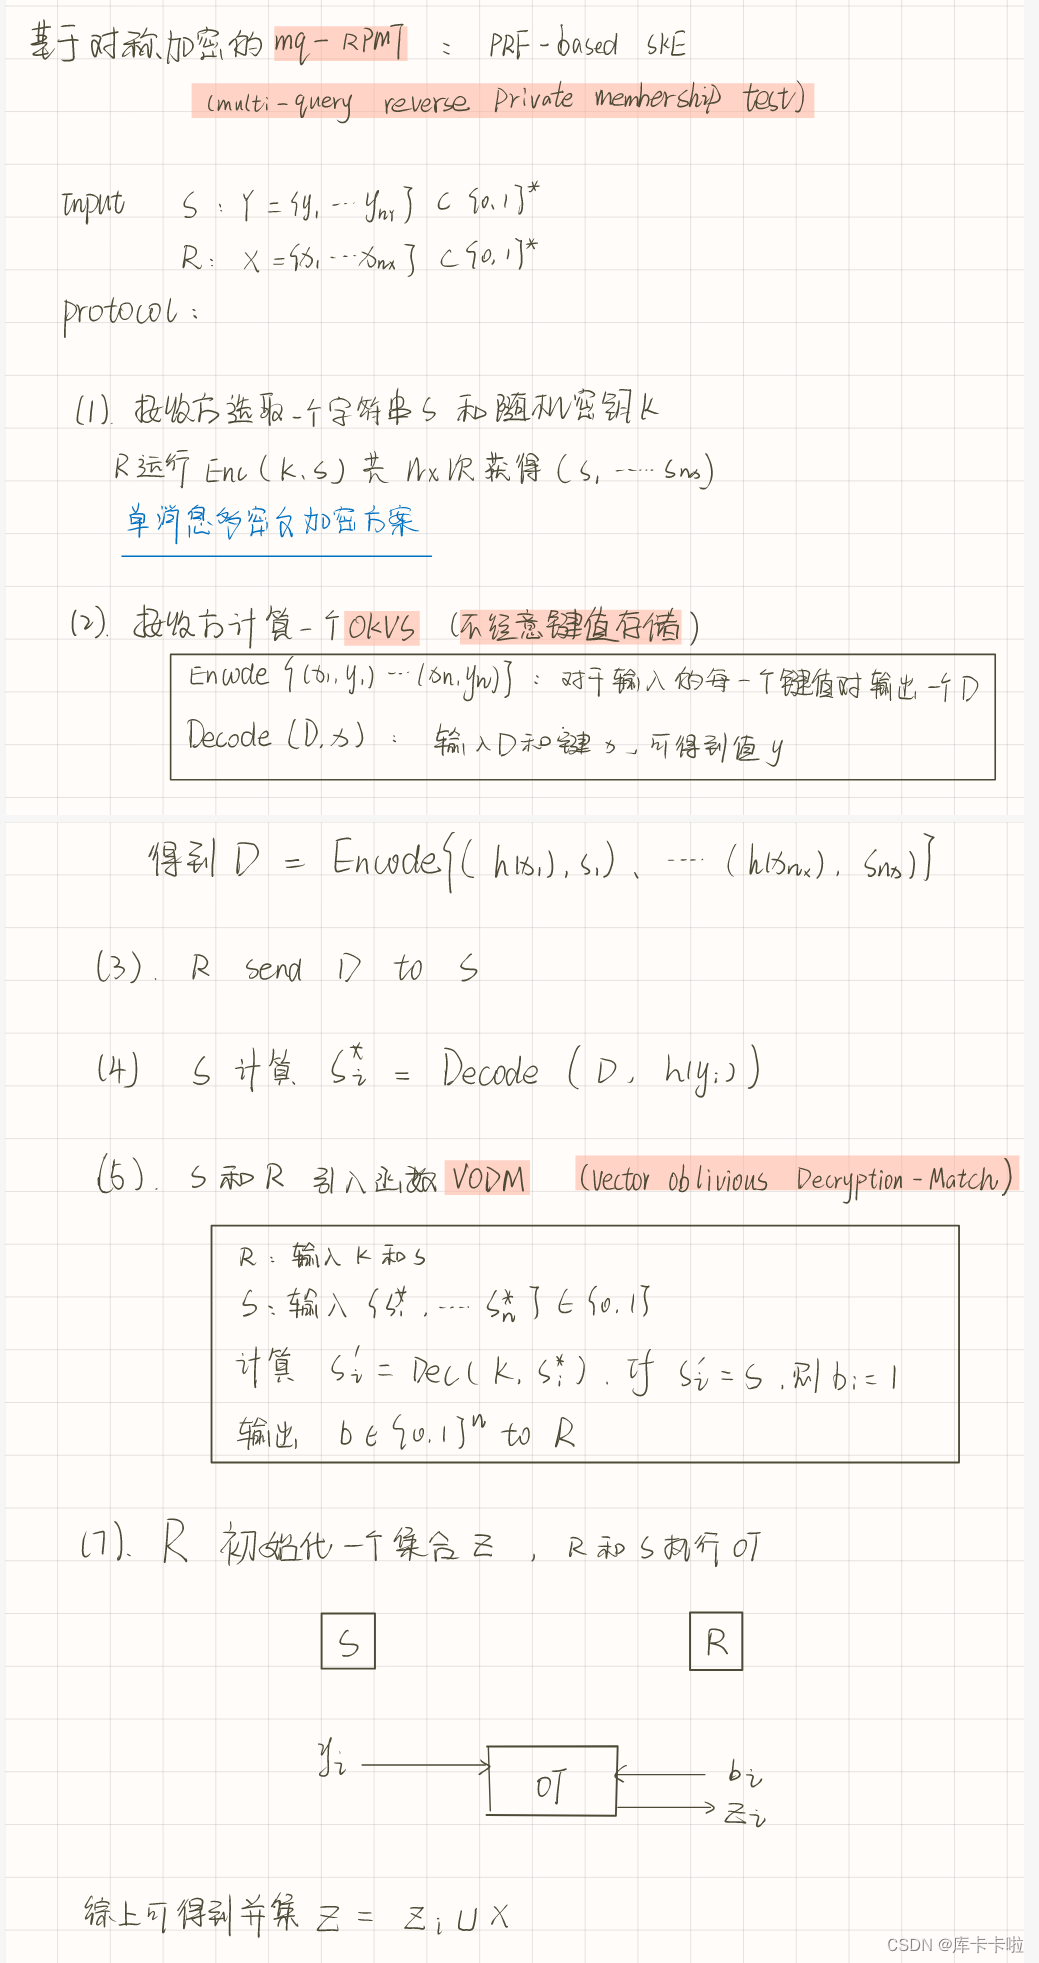 基于对称加密的 mq-RPMT : PRF-based SKE
(multi-query reverse private membership test)
Input S: Y = {y₁ ... y_{nY}} ⊂ {0,1}*
R: X = {x₁ ... x_{nx}} ⊂ {0,1}*
protocol:
(1). 接收方选取一个字符串 S 和随机密钥 K
R运行 Enc(K,S) 共 nx次 获得 (s₁ ...... s_{nx})
单消息多密文加密方案
(2). 接收方计算一个 OKVS (不经意键值存储)
Encode {(x₁,y₁) ... (xn,yn)}: 对于输入的每一个键值对输出一个D
Decode (D,x): 输入D和键x,可得到值y
得到 D = Encode{(h(x₁),s₁)、 ...... (h(x_{nx}), s_{nx})}
(3). R send D to S
(4) S 计算 S*ᵢ = Decode (D, h(yᵢ))
(5). S 和 R 引入函数 VODM (vector oblivious Decryption-Match)
R: 输入 K 和 S
S: 输入 {S₁*, .... Sn*} ∈ {0,1}
计算 Sᵢ′ = Dec(K, Sᵢ*). if Sᵢ′ = S, 则 bᵢ = 1
输出 b ∈ {0,1}ⁿ to R
(7). R 初始化一个集合 Z , R 和 S 执行 OT
S R
yᵢ OT bᵢ
zᵢ
综上可得到并集 Z = Zᵢ ∪ X
CSDN @库卡卡啦